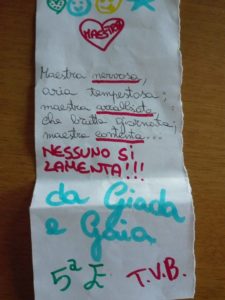 MAESTRA
Maestra nervosa,
aria tempestosa;
maestra arrabbiata
che brutta giornata;
maestra contenta...
NESSUNO SI
LAMENTA!!!
da Giada
e Gaia
5ª E T.V.B.